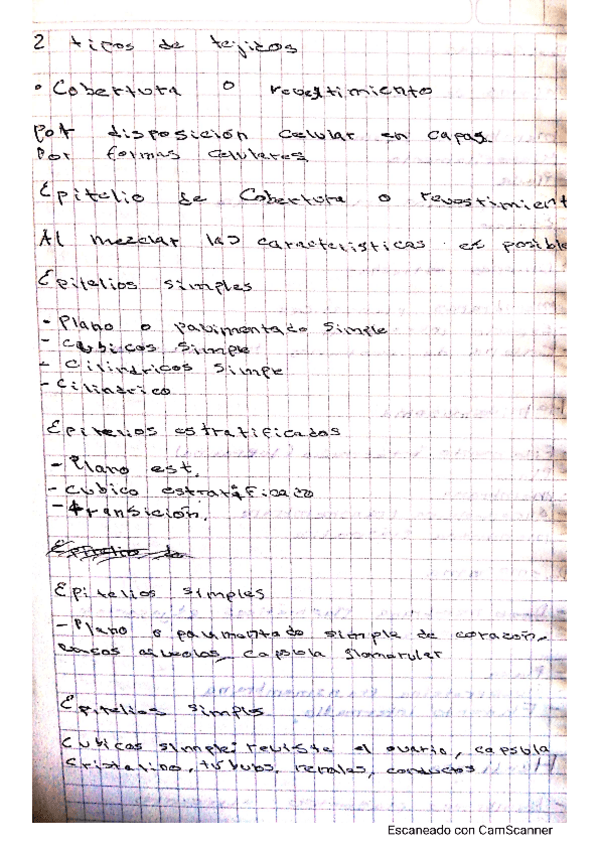 2 tipos de tejidos
• Cobertura o revestimiento
Por disposición celular en capas.
Por formas celulares
Epitelio de Cobertura o revestimient
Al mezclar las caracteristicas es posible
Epitelios simples
- Plano o pavimentado simple
- cubicos simple
- Cilindricos simpe
- Cilindrico
Epitelios estratificadas
- Plano est.
- cúbico estratificado
- transición.
Epitelio de
Epitelios simples
- Plano o pavimentado simple de corazon-
alveolos, capsula glomerular
Epitelios simples
Cubicas simple: reviste el ovario, capsula
Cristalino, tubulos, renales, conductos
Escaneado con CamScanner